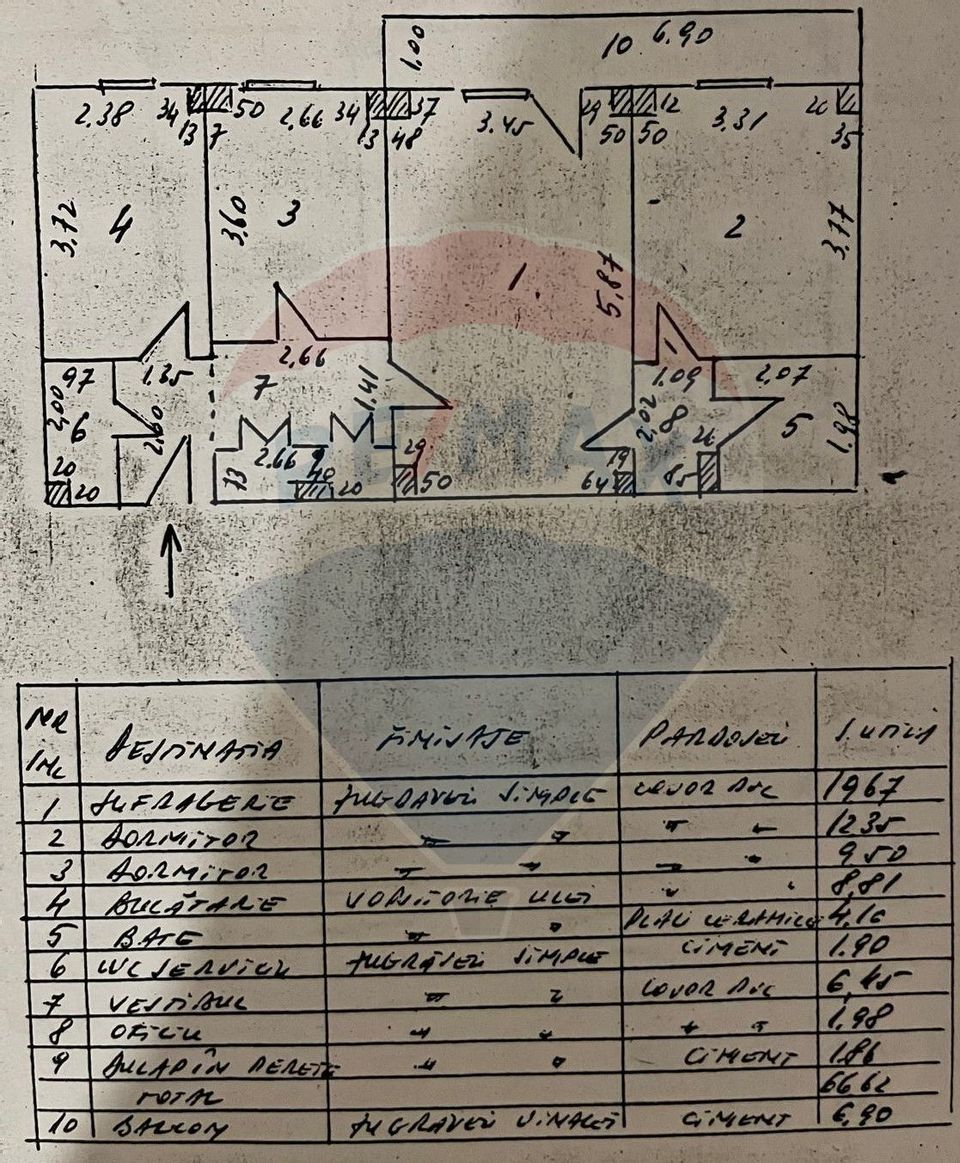 10 6.90
1,00
2.38 34 50 2.66 34 37 3.45 29 12 3.31 20
13 7 13 48 50 50 35
3.72 4 3.60 3 1. 5.87 2 3.77
97 1.35 2,66 1.09 2,07
2,00 6 2.60 7 1.41 2.02 8 5 1.98
20 20 73 2.66 9 40 20 29 50 19 64 26 85
RE/MAX
NR INC DESTINATIA FINISAJE PARDOSELI S.UTILA
1 SUFRAGERIE ZUGRAVELI SIMPLE COVOR PVC 19,67
2 DORMITOR " " " " 12.35
3 DORMITOR " " " " 9.50
4 BUCĂTARIE VOPSITORIE ULEI " " 8,81
5 BAIE " " PLACI CERAMICE 4.10
6 WC SERVICIU ZUGRĂVELI SIMPLE CIMENT 1.90
7 VESTIBUL " " COVOR PVC 6,45
8 OFICIU " " " " 1,98
9 DULAP ÎN PERETE " " CIMENT 1.86
TOTAL 66.62
10 BALCON ZUGRAVELI SIMPLE CIMENT 6,90